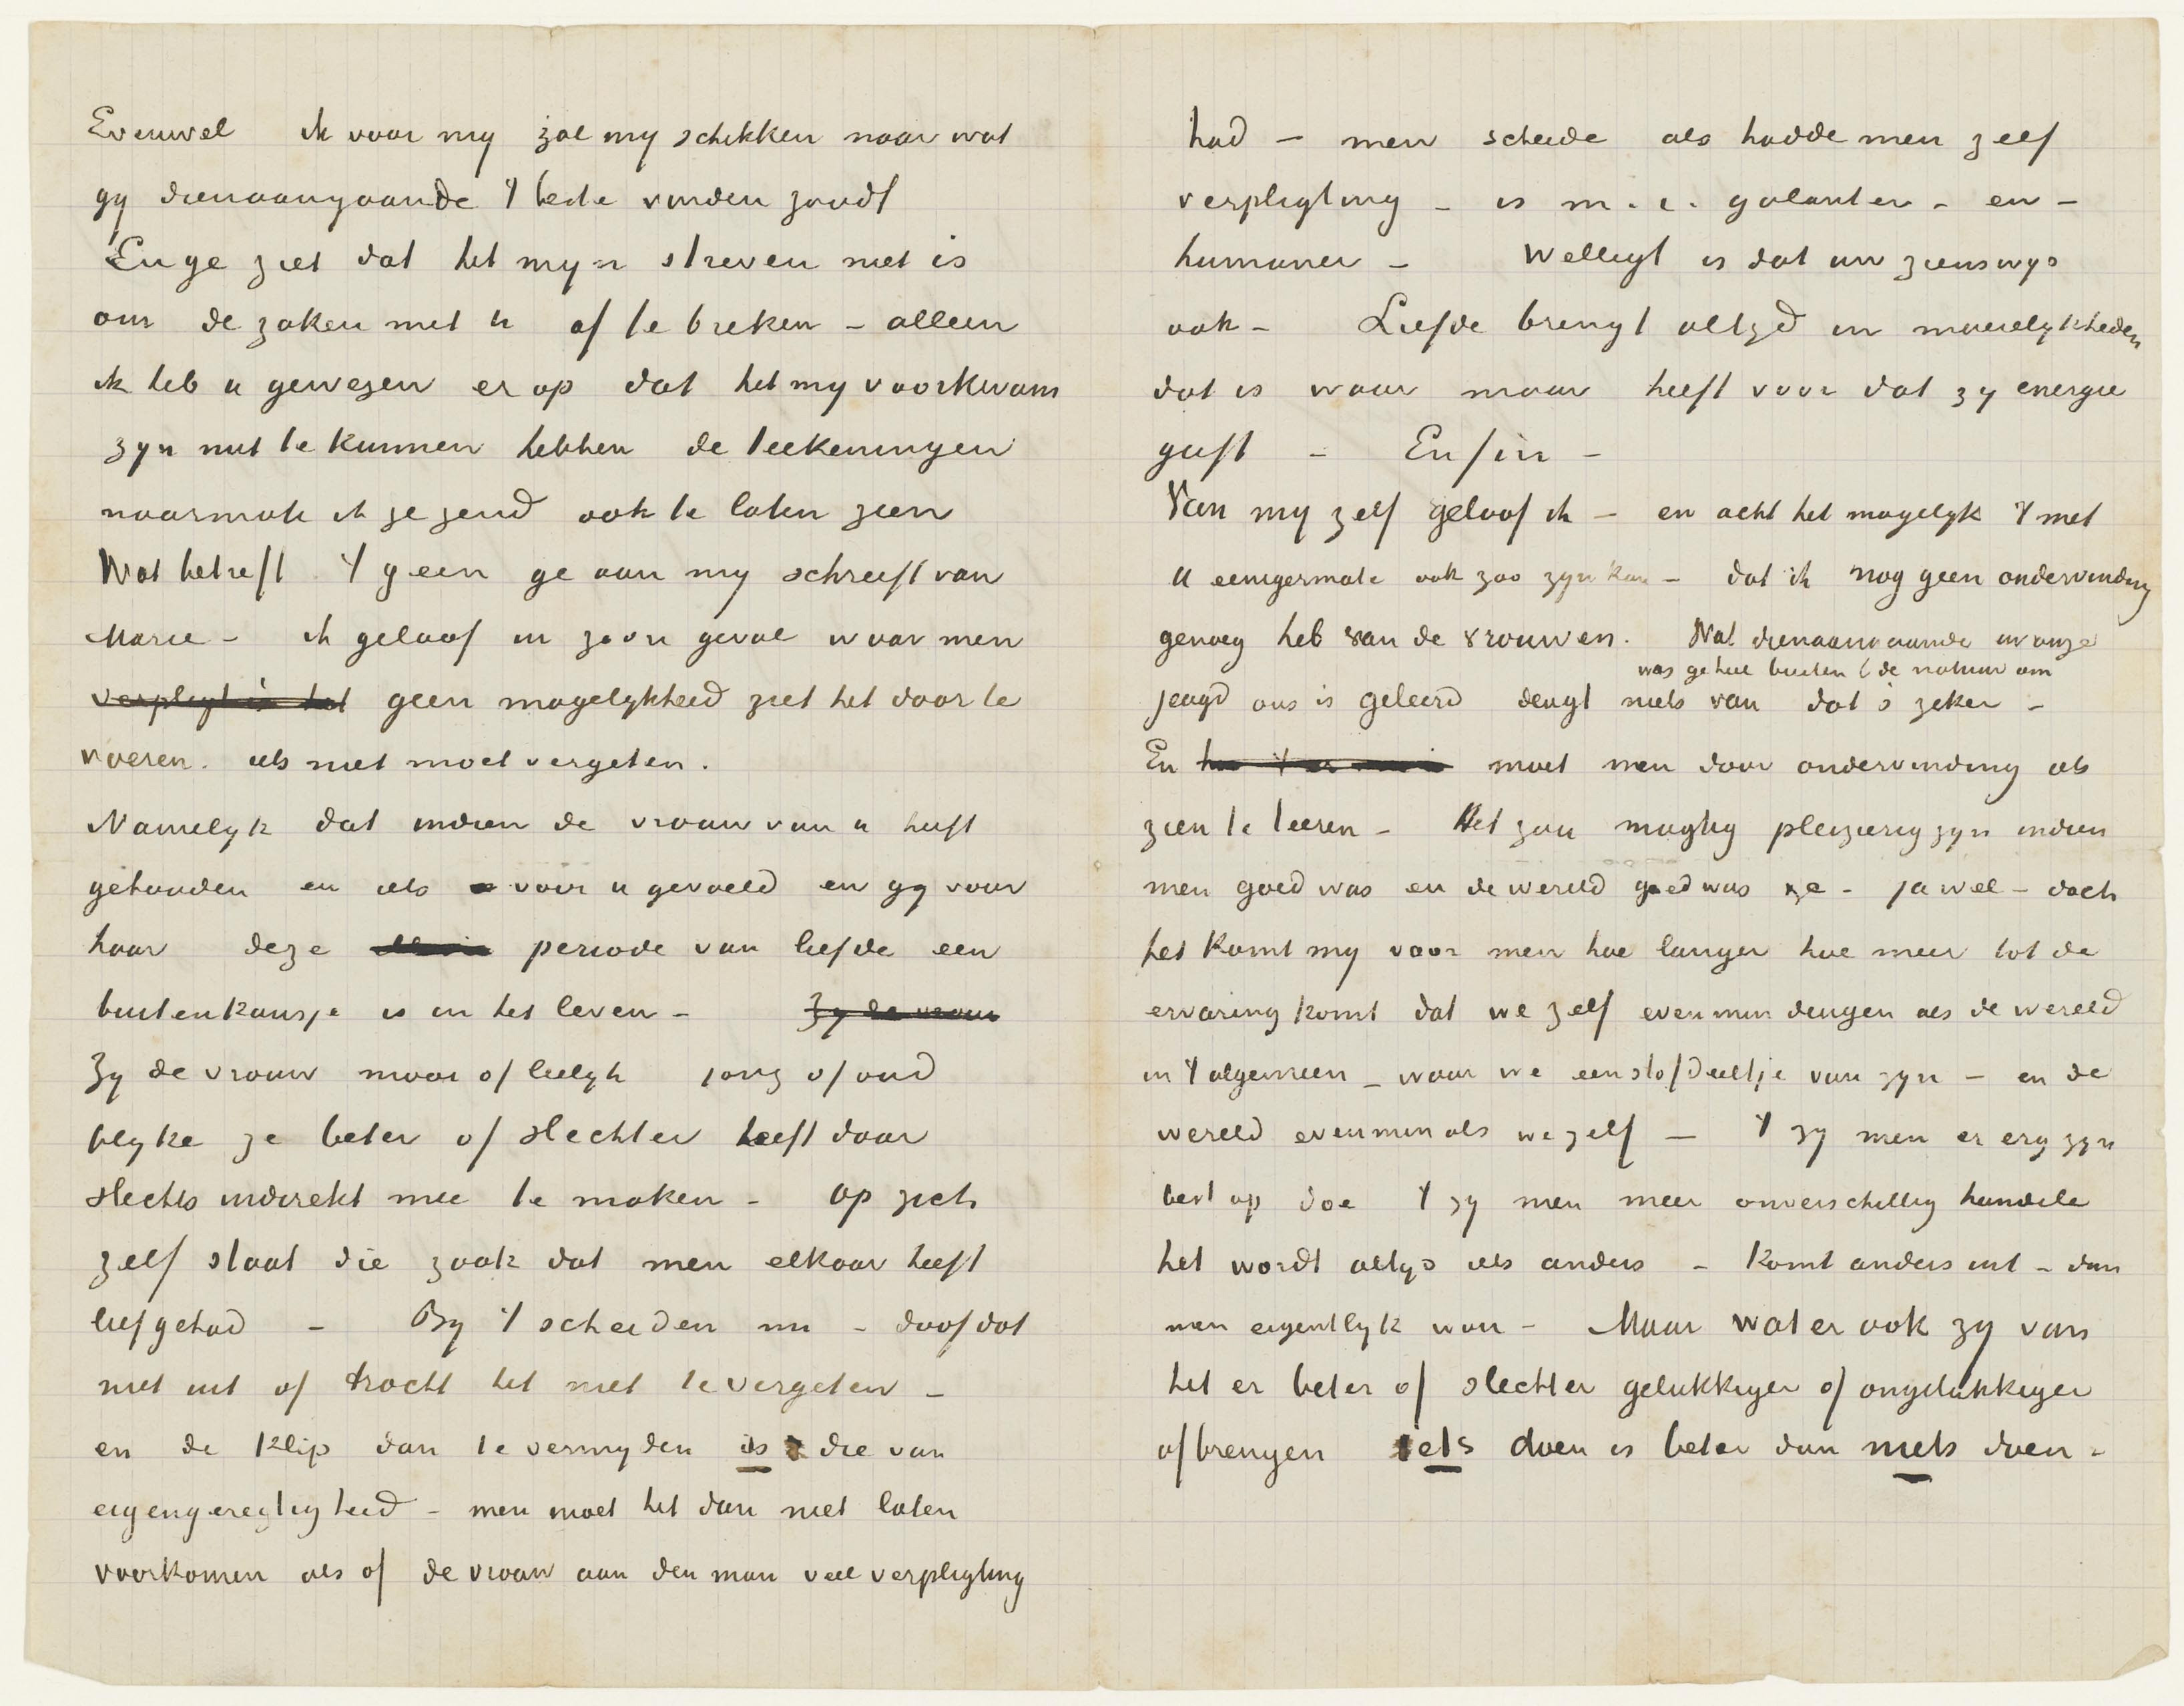 Evenwel ik voor my zal my schikken naar wat
gy dienaangaande 't beste vinden zoudt
En ge ziet dat het myn streven niet is
om de zaken met u af te breken – alleen
ik heb u gewezen er op dat het my voorkwam
zyn nut te kunnen hebben de teekeningen
naarmate ik ze zend ook te laten zien
Wat betreft 't geen ge aan my schreeft van
Marie – ik geloof in zoo'n geval waar men
verpligt is het geen mogelykheid ziet het door te
voeren. iets niet moet vergeten.
Namelyk dat indien de vrouw van u heeft
gehouden en iets voor u gevoeld en gy voor
haar deze periode van liefde een
buitenkansje is in het leven – Zy de vrouw
Zy de vrouw mooi of leelyk jong of oud
blyke ze beter of slechter heeft daar
slechts indirekt mee te maken – op zich
zelf staat die zaak dat men elkaar heeft
liefgehad – By 't scheiden nu – doof dat
niet uit of tracht het niet te vergeten –
en de klip dan te vermyden is die van
eigengeregtigheid – men moet het dan niet laten
voorkomen als of de vrouw aan den man veel verpligting
had – men scheide als hadde men zelf
verpligting – is m.i. galanter – en –
humaner – Welligt is dat uw zienswys
ook – Liefde brengt altyd in moeielykheden
dat is waar maar heeft voor dat zy energie
geeft – Enfin –
Van my zelf geloof ik – en acht het mogelyk 't met
u eenigermate ook zoo zyn kan – dat ik nog geen ondervinding
genoeg heb van de vrouwen. Wat dienaangaande in onze
was geheel buiten de natuur om
jeugd ons is geleerd deugt niets van dat is zeker –
En moet men door ondervinding iets
zien te leeren – Het zou magtig pleizierig zyn indien
men goed was en de wereld goed was &c – ja wel – doch
het komt my voor men hoe langer hoe meer tot de
ervaring komt dat we zelf evenmin deugen als de wereld
in 't algemeen – waar we een stofdeeltje van zyn – en de
wereld evenmin als we zelf – 't zy men er erg zyn
best op doe 't zy men meer onverschillig handele
het wordt altys iets anders – komt anders uit – dan
men eigentlyk wou – Maar wat er ook zy van
het er beter of slechter gelukkiger of ongelukkiger
afbrengen iets doen is beter dan niets doen –